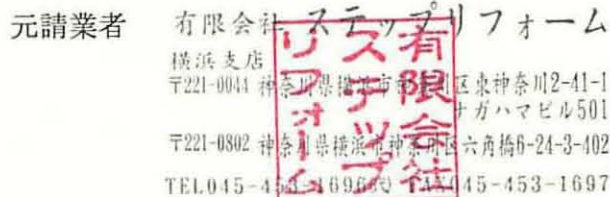 元請業者
有限会社 ステップリフォーム
横浜支店
〒221-0044 神奈川県横浜市神奈川区東神奈川2-41-1
ナガハマビル501
〒221-0802 神奈川県横浜市神奈川区六角橋6-24-3-402
TEL045-453-1696㈹ FAX045-453-1697
有限会社
ステップ
リフォーム